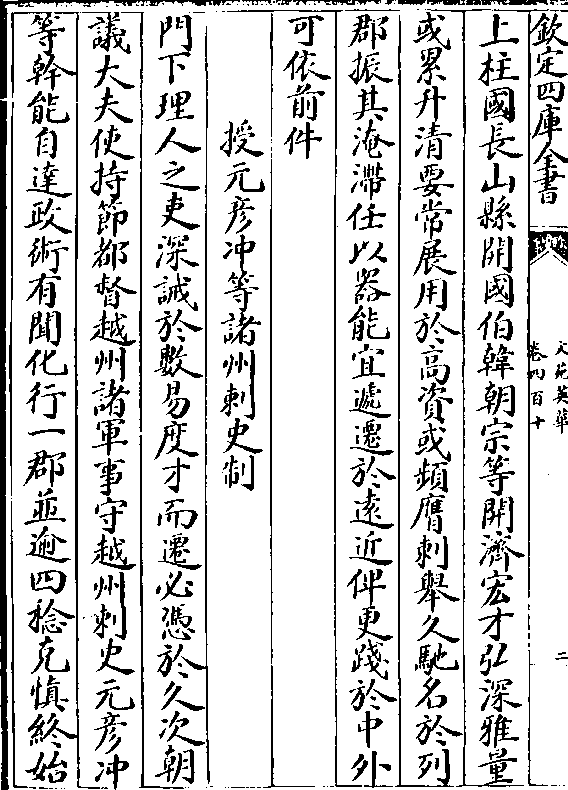 欽定四庫全書
文苑英華
卷四百十
二
上柱國長山縣開國伯韓朝宗等開濟宏才弘深雅量
或累升清要常展用於高資或頻膺刺舉久馳名於列
郡振其淹滯任以器能宜遞遷於遠近俾更踐於中外
可依前件
授元彦冲等諸州刺史制
門下理人之吏深誡於數易度才而遷必憑於久次朝
議大夫使持節都督越州諸軍事守越州刺史元彦冲
等幹能自達政術有聞化行一郡並逾四稔克慎終始